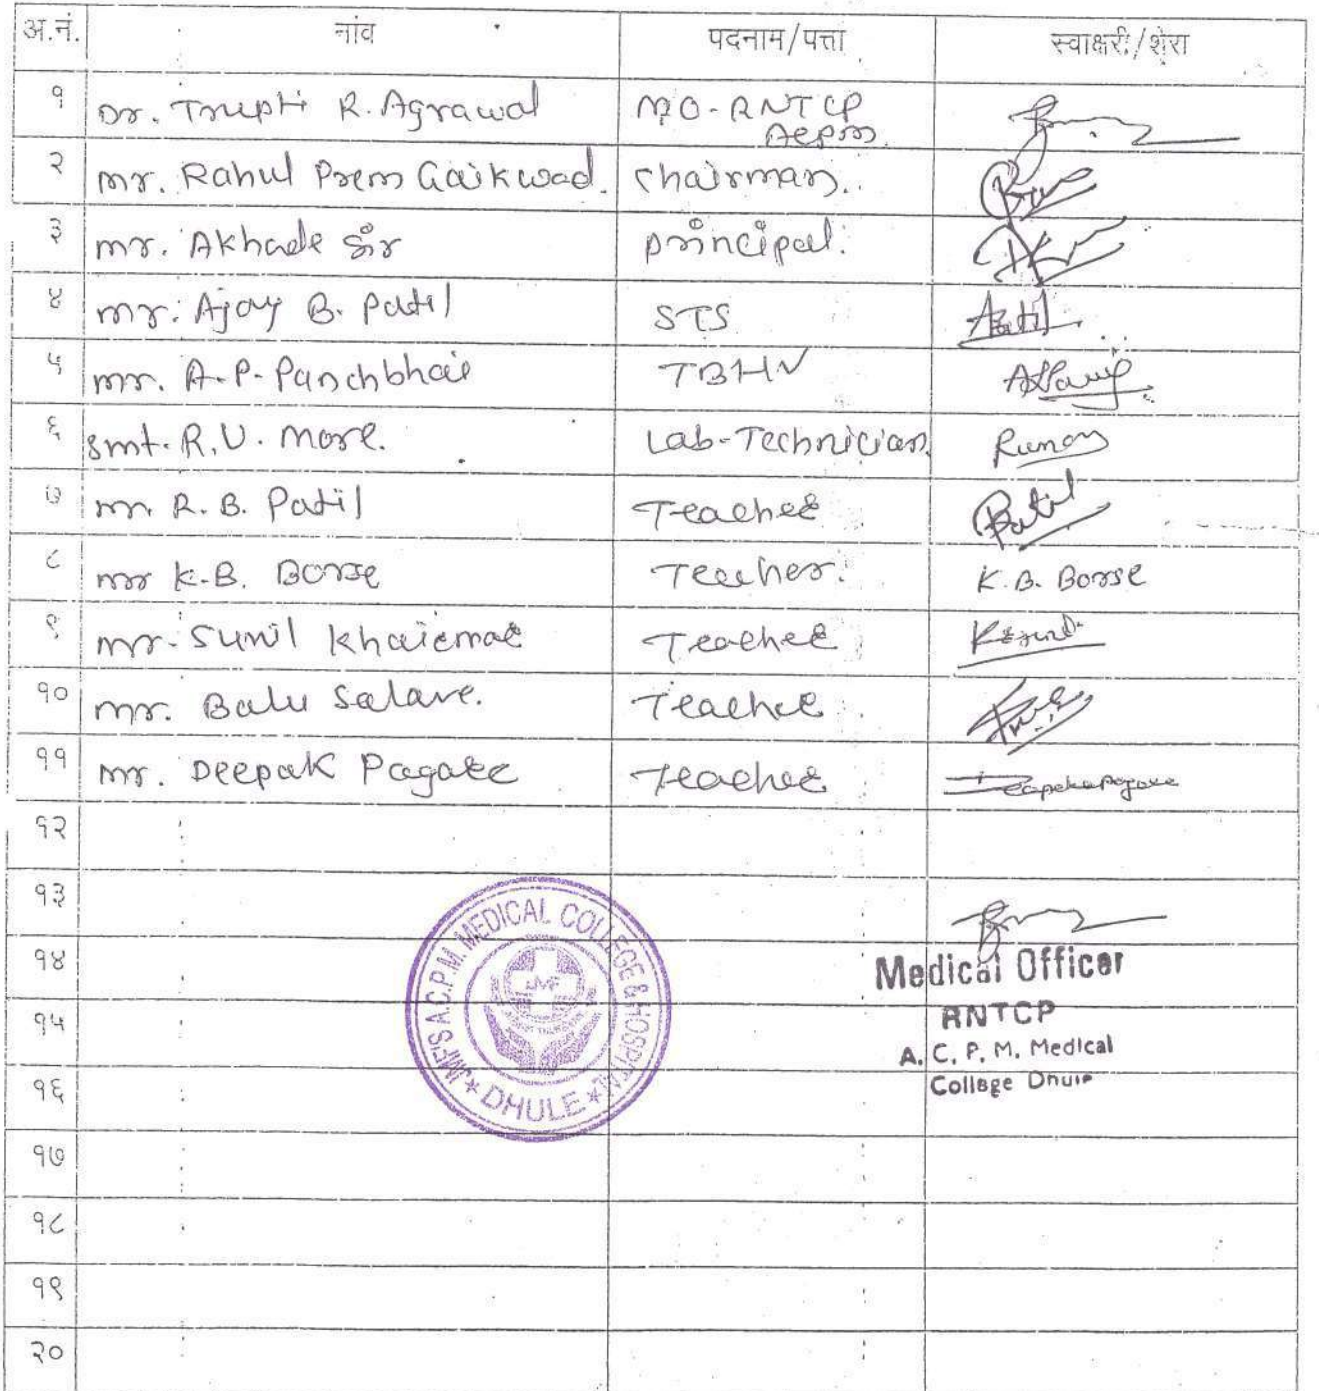 अ.नं. नांव पदनाम/पत्ता स्वाक्षरी/शेरा
१ Dr. Trupti R. Agrawal MO-RNTCP
Acpm.
२ mr. Rahul Prem Gaikwad. Chairman..
३ mr. Akhade Sir principal.
४ mr. Ajay B. Patil STS Patil
५ mr. A.P. Panchbhai TBHV
६ Smt. R.U. More. Lab-Technician.
७ mr. R.B. Patil Teacher Patil
८ mr K.B. Borse Teacher. K.B. Borse
९ mr. Sunil Khairnar Teacher
१० mr. Balu Salave. Teacher
११ mr. Deepak Pagare Teacher Deepak Pagare
१२
१३
१४
१५
१६
१७
१८
१९
२०
JMF'S A.C.P.M. MEDICAL COLLEGE & HOSPITAL
* DHULE *
JMF
Medical Officer
RNTCP
A. C. P. M. Medical
College Dhule